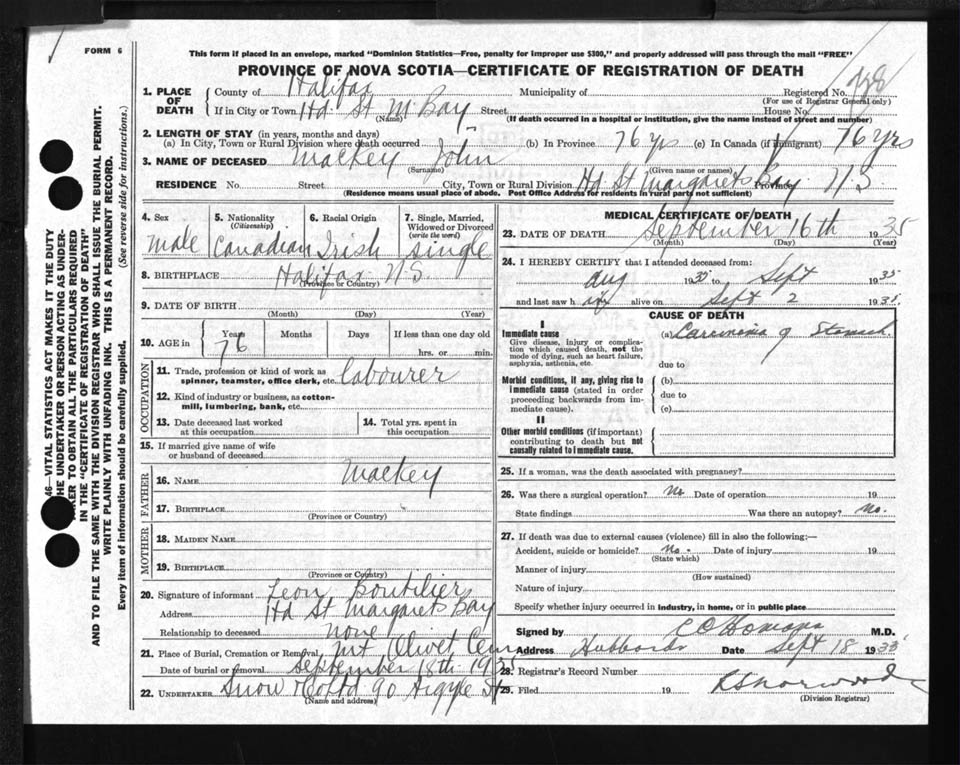 FORM 6
This form if placed in an envelope, marked "Dominion Statistics—Free, penalty for improper use $300," and properly addressed will pass through the mail "FREE"
PROVINCE OF NOVA SCOTIA—CERTIFICATE OF REGISTRATION OF DEATH
1. PLACE OF DEATH
County of Halifax Municipality of Registered No.
(For use of Registrar General only)
If in City or Town Hd. St M. Bay Street House No.
(Name) (If death occurred in a hospital or institution, give the name instead of street and number)
2. LENGTH OF STAY (in years, months and days)
(a) In City, Town or Rural Division where death occurred (b) In Province 76 yrs (c) In Canada (if immigrant) 76 yrs
3. NAME OF DECEASED Mackey John
(Surname) (Given name or names)
RESIDENCE No. Street City, Town or Rural Division Hd St Margarets Bay Province N.S
(Residence means usual place of abode. Post Office Address for residents in rural parts not sufficient)
4. Sex
male
5. Nationality (Citizenship)
Canadian
6. Racial Origin
Irish
7. Single, Married, Widowed or Divorced (write the word)
Single
8. BIRTHPLACE Halifax N.S.
(Province or Country)
9. DATE OF BIRTH
(Month) (Day) (Year)
10. AGE in Years Months Days If less than one day old
76 hrs. or min.
OCCUPATION
11. Trade, profession or kind of work as spinner, teamster, office clerk, etc. Labourer
12. Kind of industry or business, as cotton-mill, lumbering, bank, etc.
13. Date deceased last worked at this occupation
14. Total yrs. spent in this occupation
15. If married give name of wife or husband of deceased
FATHER
16. NAME Mackey
17. BIRTHPLACE
(Province or Country)
MOTHER
18. MAIDEN NAME
19. BIRTHPLACE
(Province or Country)
20. Signature of informant Leon Boutilier
Address Hd St Margarets Bay
Relationship to deceased none
21. Place of Burial, Cremation or Removal Mt Olivet Cem
Date of burial or removal September 18th 1935
22. UNDERTAKER Snow & Co Ltd 90 Argyle St
(Name and address)
MEDICAL CERTIFICATE OF DEATH
23. DATE OF DEATH September 16th 1935
(Month) (Day) (Year)
24. I HEREBY CERTIFY that I attended deceased from:
Aug 1935 to Sept 1935
and last saw h alive on Sept 2 1935.
CAUSE OF DEATH
I
Immediate cause
Give disease, injury or complication which caused death, not the mode of dying, such as heart failure, asphyxia, asthenia, etc.
(a) Carcinoma of Stomach
due to
Morbid conditions, if any, giving rise to immediate cause (stated in order proceeding backwards from immediate cause).
(b)
due to
(c)
II
Other morbid conditions (if important) contributing to death but not causally related to immediate cause.
25. If a woman, was the death associated with pregnancy?
26. Was there a surgical operation? No Date of operation 19
State findings Was there an autopsy? No.
27. If death was due to external causes (violence) fill in also the following:—
Accident, suicide or homicide? No. Date of injury 19
(State which)
Manner of injury
(How sustained)
Nature of injury
Specify whether injury occurred in industry, in home, or in public place
Signed by M.D.
Address Hubbards Date Sept 18 1935
28. Registrar's Record Number
29. Filed 19
(Division Registrar)
46—VITAL STATISTICS ACT MAKES IT THE DUTY
THE UNDERTAKER OR PERSON ACTING AS UNDER-
TAKER TO OBTAIN ALL THE PARTICULARS REQUIRED
IN THE "CERTIFICATE OF REGISTRATION OF DEATH"
AND TO FILE THE SAME WITH THE DIVISION REGISTRAR WHO SHALL ISSUE THE BURIAL PERMIT.
WRITE PLAINLY WITH UNFADING INK. THIS IS A PERMANENT RECORD.
Every item of information should be carefully supplied. (See reverse side for instructions.)